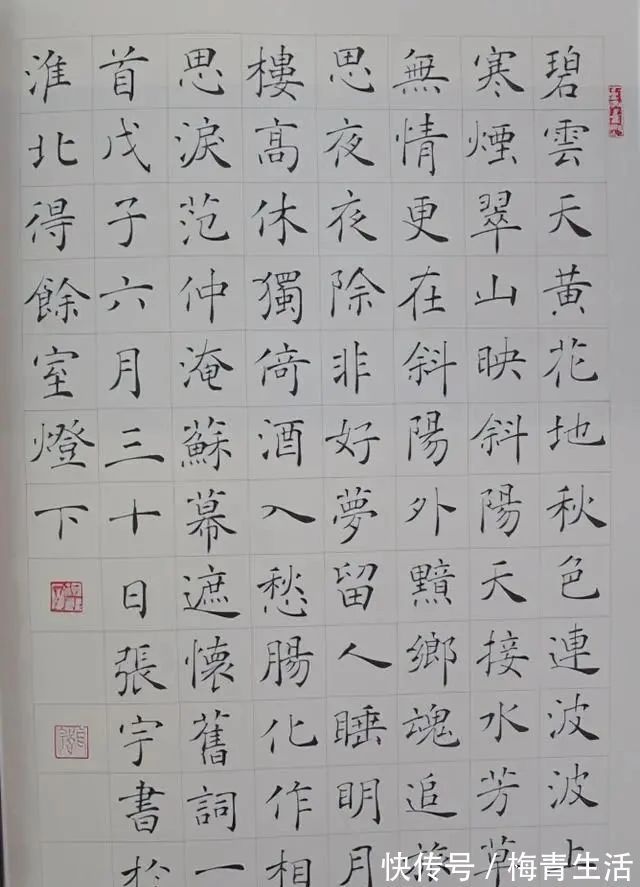 碧雲天黃花地秋色連波波上
寒煙翠山映斜陽天接水芳草
無情更在斜陽外黯鄉魂追旅
思夜夜除非好夢留人睡明月
樓高休獨倚酒入愁腸化作相
思淚范仲淹蘇幕遮懷舊詞一
首戊子六月三十日張宇書於
淮北得餘室燈下
快传号／梅青生活